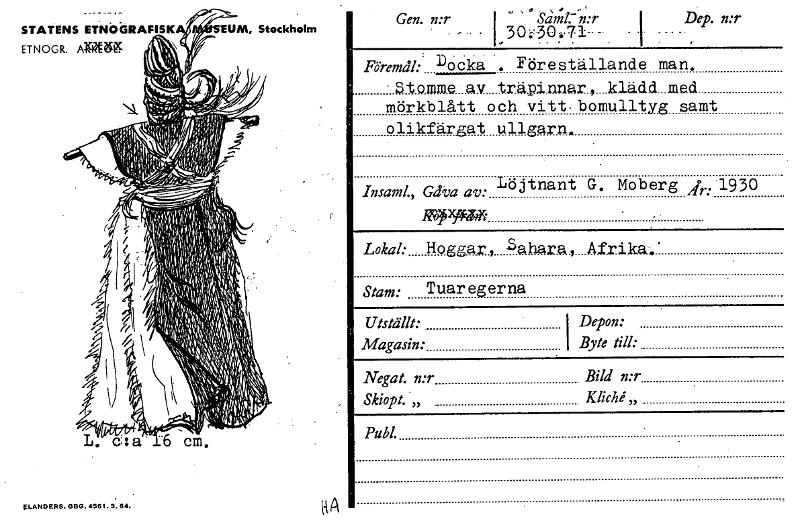 STATENS ETNOGRAFISKA MUSEUM, Stockholm
ETNOGR. 
L. c:a 16 cm.
ELANDERS. GBG. 4561. 3. 64.
HA
Gen. n:r
Saml. n:r
Dep. n:r
30.30.71
Föremål: Docka . Föreställande man.
Stomme av träpinnar, klädd med
mörkblått och vitt bomulltyg samt
olikfärgat ullgarn.
Insaml., Gåva av: Löjtnant G. Moberg År: 1930
Köp från:
Lokal: Hoggar, Sahara, Afrika.
Stam: Tuaregerna
Utställt:
Depon:
Magasin:
Byte till:
Negat. n:r
Bild n:r
Skiopt. „
Kliché „
Publ.